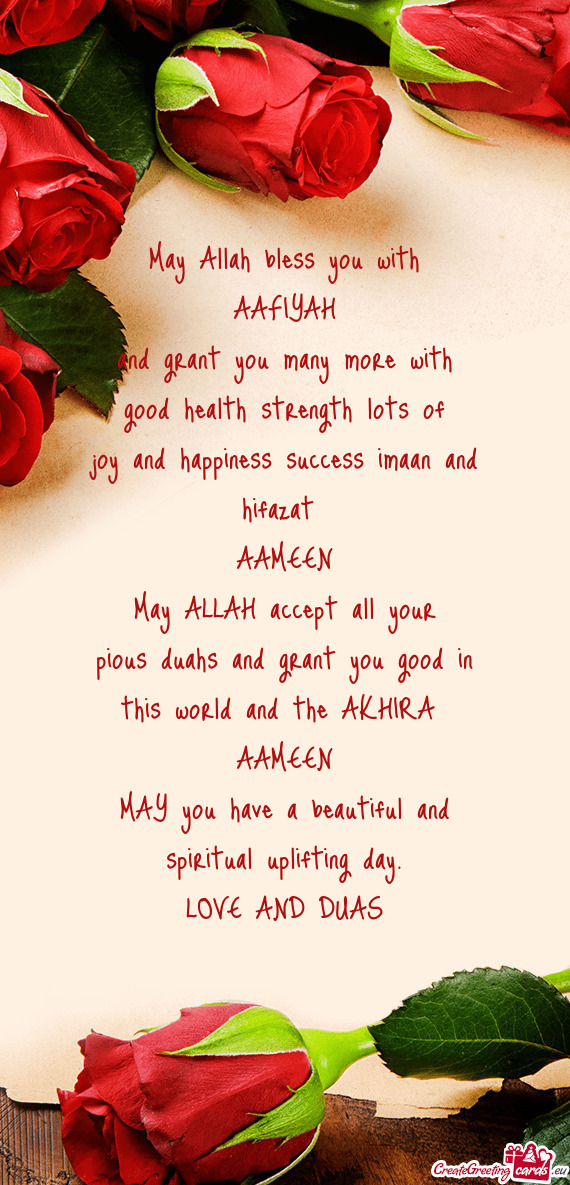 May Allah bless you with
AAFIYAH
and grant you many more with
good health strength lots of
joy and happiness success imaan and
hifazat
AAMEEN
May ALLAH accept all your
pious duahs and grant you good in
this world and the AKHIRA
AAMEEN
MAY you have a beautiful and
spiritual uplifting day.
LOVE AND DUAS
CreateGreeting cards .eu